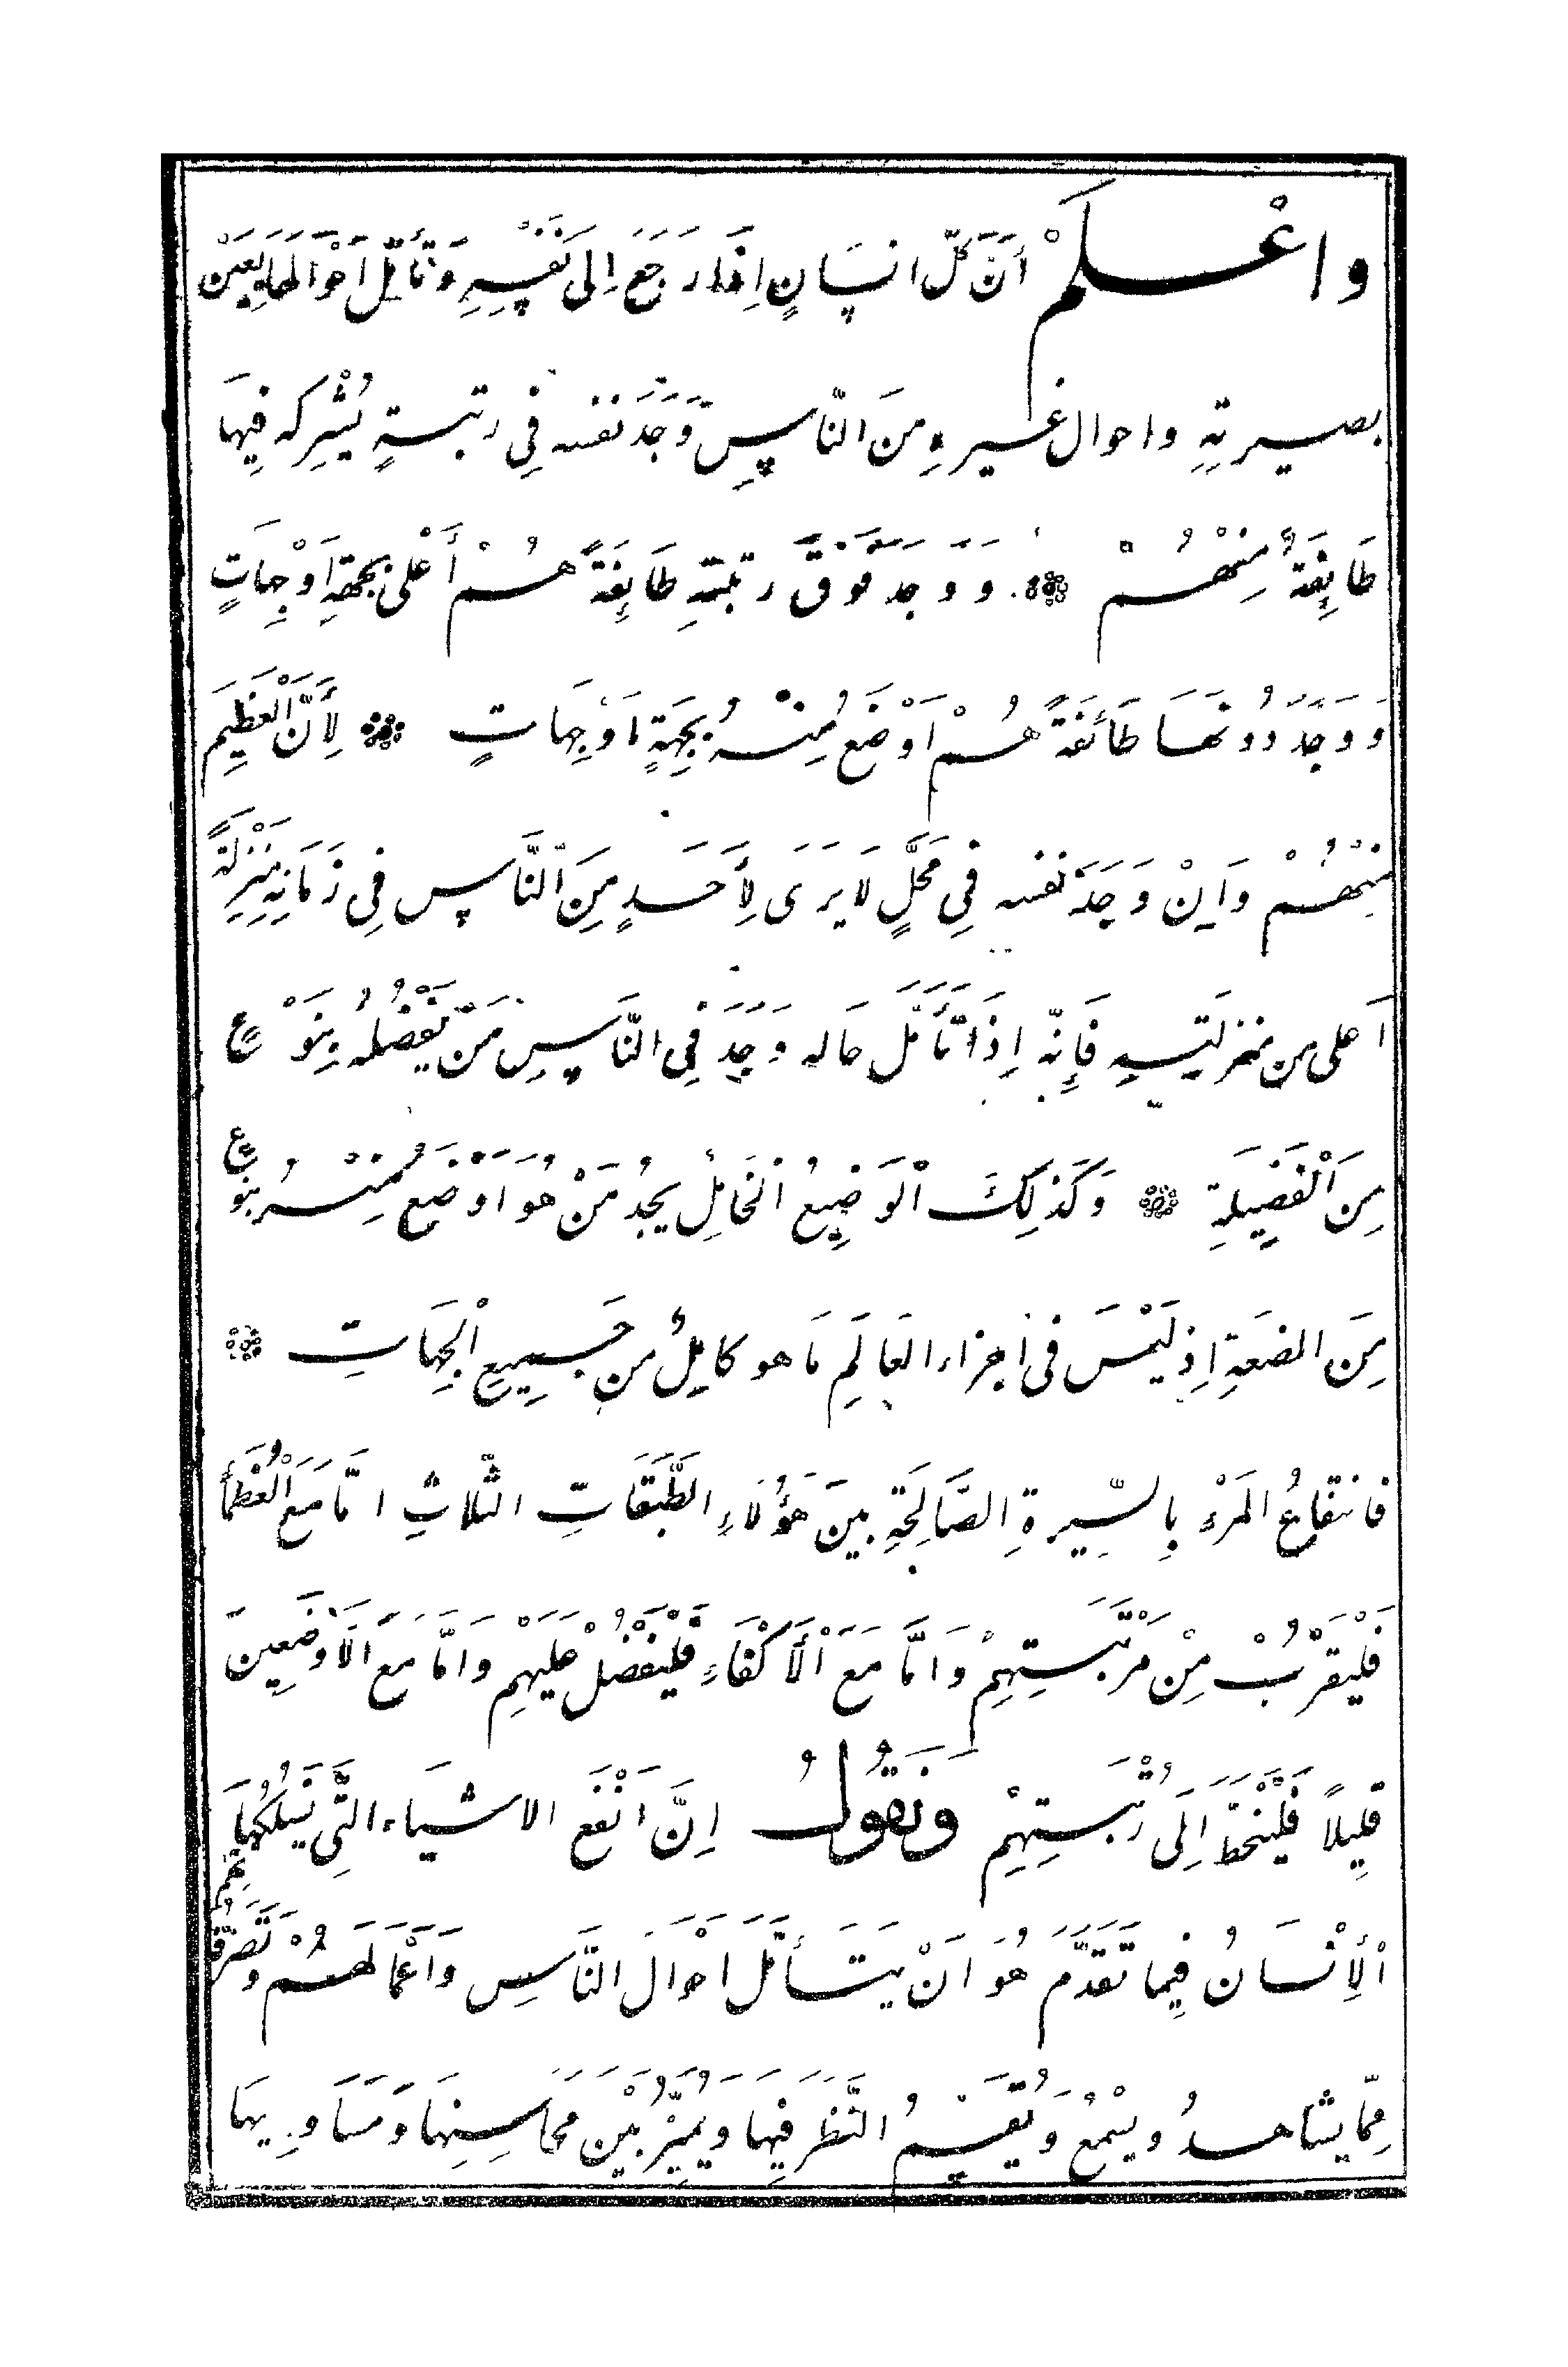 واعْلَمْ أَنَّ كُلَّ انسَانٍ اِذَا رَجَعَ اِلىَ نَفْسِهِ وَتَأَمَّلَ اَحْوَالَهَا بِعَيْنِ
بصيرتِهِ واحوال غيرهِ مِنَ النَّاسِ وَجَدَ نفسه فِي رتبةٍ يُشْرِكه فِيهَا
طَايِفَةٌ مِنْهُمْ وَوَجَدَ فَوْقَ رتبتهِ طَايِفَةً هُمْ أَعْلىَ بجهةٍ اَوْجِهَاتٍ
وَوَجَدَ دُونَهَا طَائفَةً هُمْ اَوْضَعُ مِنْهُ بِجِهَةٍ اَوْجِهَاتٍ لِأَنَّ الْعَظِيمَ
مِنْهُمْ وَاِنْ وَجَدَ نفسه فِي مَحَلٍّ لَا يَرَى لِأَحَدٍ مِنَ النَّاسِ فِي زَمَانِهِ مَنْزِلَةً
اَعلى من منزلتِهِ فَإِنَّه اِذَا تَأَمَّلَ حَاله وَجَدَ فِى النَّاسِ مَنْ يَفْضُلُهُ بِنَوْعٍ
مِنَ الْفَضِيلَةِ وَكَذلِكَ الْوَضِيعُ الْخَامِلُ يجدُ مَنْ هُوَ اَوْضَعُ مِنْهُ بنوعٍ
مِنَ الضعَةِ اِذ لَيْسَ فى اجزاء العَالَمِ مَا هو كامِلٌ من جَمِيعِ الْجِهَاتِ
فانتفاعُ المَرْءِ بِالسِّيرةِ الصَّالِحَةِ بينَ هَؤُلَاءِ الطَّبَقَاتِ الثَّلاثِ امَّا مَعَ الْعُظَمَأ
فَلْيَقْرُبْ مِنْ مَرْتَبَتِهِمْ وَاَمَّا مَعَ الْأَكْفَاءِ فَلْيَفْضُلْ عليَهْمِ وَاَمَّا مَعَ الَاوْضَعِينَ
قلِيلاً فَلْيَنْحَطَّ اِلَى رُتْبَتِهِمْ وَنَقُولُ اِنَّ اَنْفَعَ الاشيَاء الَّتِى يَسْلُكُهَا
الْأِنْسَانُ فِيما تَقَدَّمَ هُوَ اَنْ يَتَأَمَّلَ اَحْوَالَ النَّاسِ وَاَعْمَالَهُمْ وَتَصَرُّفَاتِهِمْ
مِمَّا يشاهدُ ويسْمَعُ وَيُقِيمُ النَّظَرَ فِيهَا وَيُمَيِّزُ بَيْنَ مَحَاسِنِهَا وَمَسَاوِيهَا